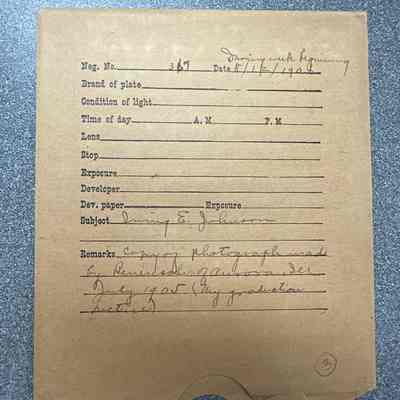 During week beginning
Neg. No. 367 Date 5/12/190
Brand of plate
Condition of light
Time of day A. M P. M
Lens
Stop
Exposure
Developer
Dev. paper Exposure
Subject Irving E. Johnson
Remarks Copy of photograph made
by of Aurora, Ill
July 1905 (My graduation
picture)
3